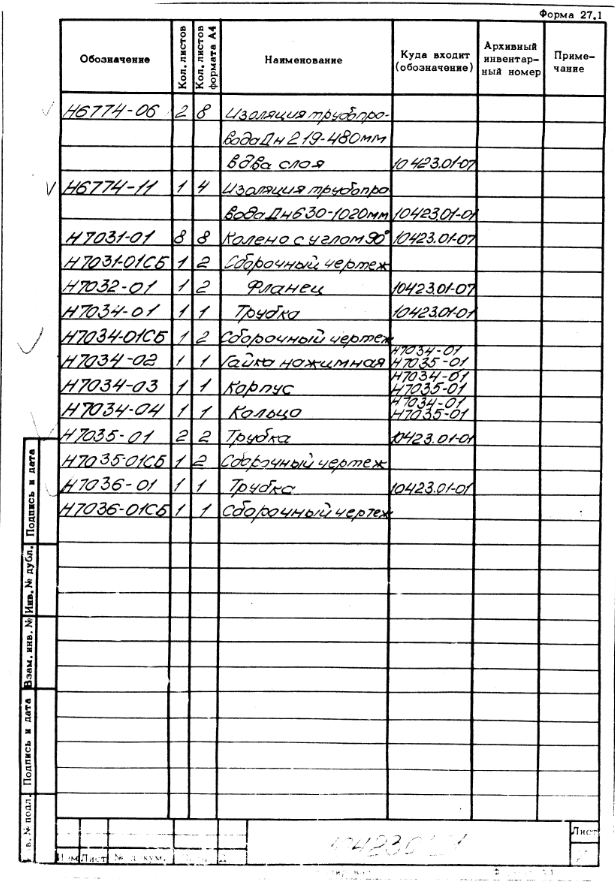 Форма 27.1
Обозначение Кол. листов Кол. листов формата А4 Наименование Куда входит (обозначение) Архивный инвентар-ный номер Приме-чание
Н6774-06 2 8 Изоляция трубопро-
вода Дн 219-480мм
в два слоя 10423.01-07
Н6774-11 1 4 Изоляция трубопро
вода Дн630-1020мм 10423.01-01
Н7031-01 8 8 Колено с углом 90° 10423.01-07
Н7031-01СБ 1 2 Сборочный чертеж
Н7032-01 1 2 Фланец 10423.01-07
Н7034-01 1 1 Трубка 10423.01-01
Н7034-01СБ 1 2 Сборочный чертеж
Н7034-02 1 1 Гайка нажимная Н7034-01 Н7035-01
Н7034-03 1 1 Корпус Н7034-01 Н7035-01
Н7034-04 1 1 Кольцо Н7034-01 Н7035-01
Н7035-01 2 2 Трубка 10423.01-01
Н7035-01СБ 1 2 Сборочный чертеж
Н7036-01 1 1 Трубка 10423.01-01
Н7036-01СБ 1 1 Сборочный чертеж
Подпись и дата
Инв. № дубл.
Взам. инв. №
Подпись и дата
в. № подл.
Лист
Изм Лист № докум.